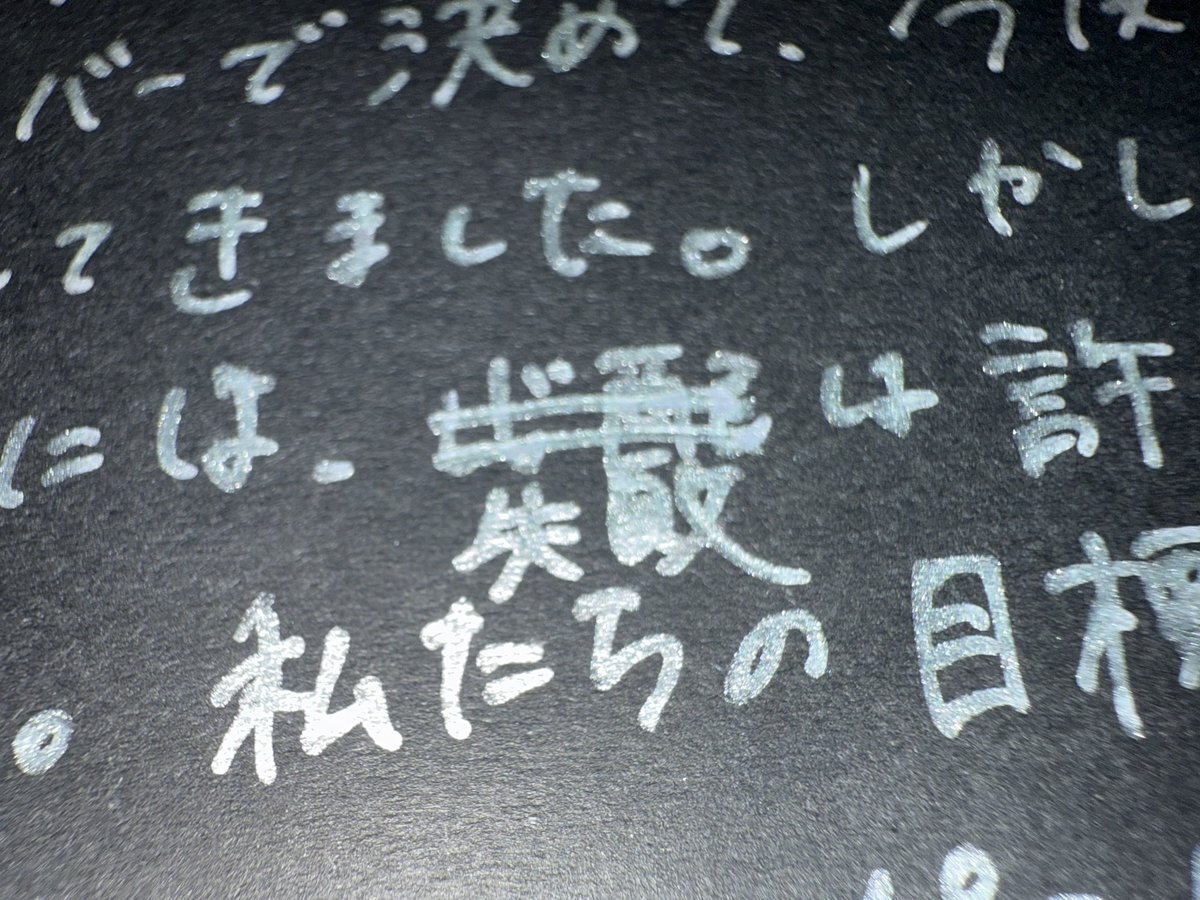 バーで決めて、
てきました。しかし
には、失敗は許
。私たちの目標